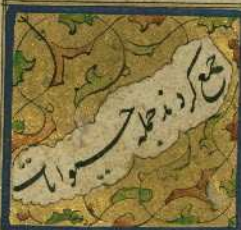 جمع کردند جمله حیوانات